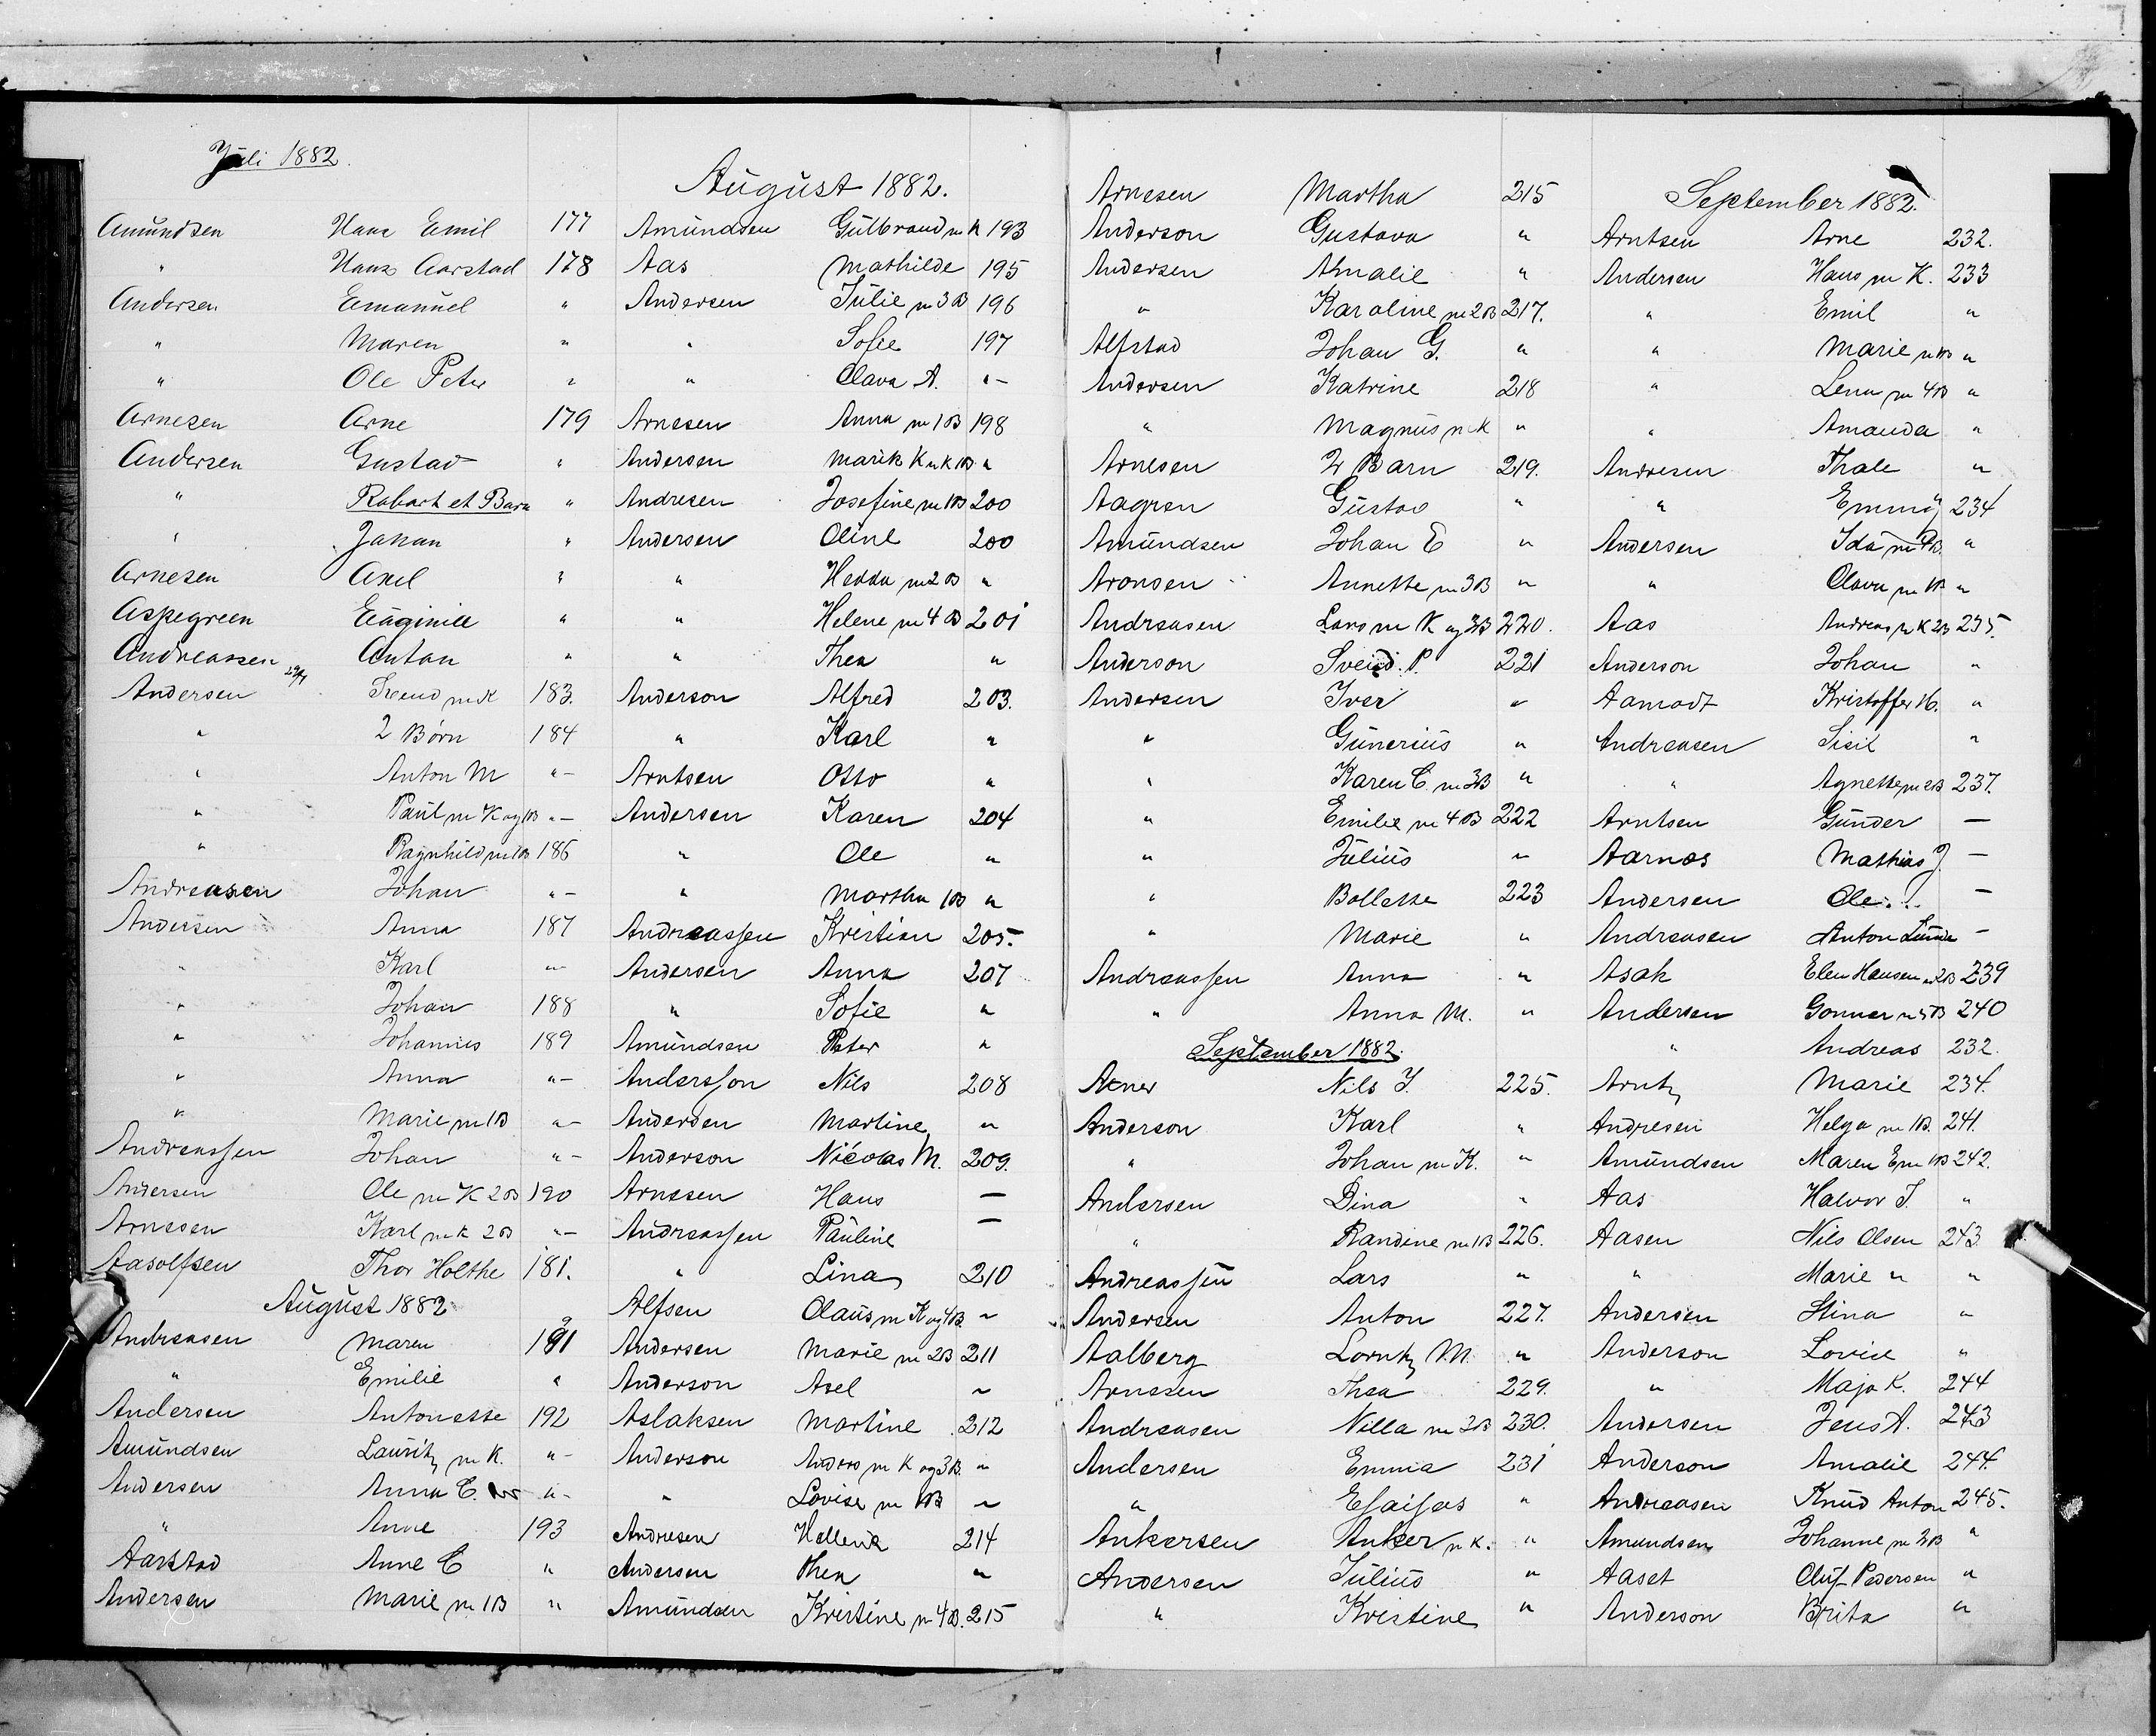 Juli 1882.
Amundsen Hans Emil 177
" Hans Aarstad 178
Andersen Emanuel "
" Maren "
" Ole Peter "
Arnesen Arne 179
Andersen Gustav "
" Robart et Barn "
" Johan "
Arnesen Axel "
Aspegreen Euginie "
Andreassen Anton "
Andersen 29/7 Svend m K 183.
" 2 Børn 184
" Anton M "-
" Paul m K og 1B "-
" Ragnhild m 1B 186
Andreasen Johan "-
Andersen Anna 187
" Karl "-
" Johan 188
" Johannes 189
" Anna "-
" Marie m 1B "-
Andreassen Johan "-
Andersen Ole m K 2B 190
Arnesen Karl m K 2B "-
Aasolfsen Thor Holthe 181.
August 1882
Andreasen Maren 191
" Emilie "
Andersen Antonette 192
Amundsen Lauritz m K. "-
Andersen Anna C. "-
" Anne 193
Aarstad Anne C "
Andersen Marie m 1B "
August 1882.
Amundsen Gulbrand m K 193
Aas Mathilde 195
Andersen Julie m 3B 196
" Sofie 197
" Olava A. "-
Arnesen Anna m 1B 198
Andersen Marik K m K 1B "
Andresen Josefine m 1B 200
Andersen Oline 200
" Hedda m 2B "
" Helene m 4B 201
" Thea "
Anderson Alfred 203.
" Karl "
Arntsen Otto "
Andersen Karen 204
" Ole "
" Martha 1B "
Andreassen Kristian 205.
Andersen Anna 207
" Sofie "
Amundsen Peter "
Andersson Nils 208
Andersen Martine "
Anderson Nicolas M. 209.
Arnesen Hans —
Andreassen Pauline —
" Lina 210
Alfsen Claus m K og 4B. "
Andersen Marie m 2B 211
Anderson Axel "
Aslaksen Martine 212
Anderson Anders m K og 3B. "
" Lovise m 1B "
Andresen Hellena 214
Andersen Thea "
Amundsen Kristine m 4B. 215
Arnesen Martha 215
Anderson Gustava "
Andersen Amalie "
" Karoline m 2B 217.
Alfstad Johan G. "
Andersen Katrine 218
" Magnus m K "
Arnesen 2 Barn 219.
Aagren Gustav "
Amundsen Johan E "
Aronsen Annette m 3B "
Andreasen Lars m K og 3B 220.
Anderson Sveid. P. 221
Andersen Iver "
" Gunerius "
" Karen C. m 3B "
" Emilie m 4B 222
" Julius "
" Bollette 223
" Marie "
Andreassen Anna "
" Anna M. "
September 1882.
Aner Nils J. 225.
Anderson Karl "
" Johan m K. "
Andersen Dina "
" Randine m 1B 226.
Andreassen Lars "
Andersen Anton 227.
Aalberg Lorntz M. "
Arnesen Thea 229.
Andreasen Nilla m 3B 230.
Andersen Emma 231
" Esaias "
Ankersen Anker m K. "
Andersen Julius "
" Kristine "
September 1882.
Arntsen Arne 232.
Andersen Hans m K. 233
" Emil "
" Marie m 1B "
" Lena m 4B "
" Amanda "
Andresen Thale "
" Emmy 234
Andersen Ida m 4B. "
" Olava m 1B "
Aas Andreas m K 2B 235.
Anderson Johan "
Aamodt Kristoffer H. "
Andreasen Sisil "
" Agnette m 2B 237.
Arntsen Gunder —
Aarnæs Mathias J. —
Andersen Ole... —
Andreasen Anton Lunde —
Asak Elen Hansen m 2B 239
Andersen Gonner m 5B 240
" Andreas 232.
Arntz Marie 234.
Andresen Helga m 1B. 241.
Amundsen Maren E m 1B 242.
Aas Halvor J. "
Aasen Nils Olsen 243.
" Marie " "
Andersen Stina "
Anderson Lovise "
" Maja K. 244
Andersen Jens A. 243
Anderson Amalie 244.
Andreasen Knud Anton 245.
Amundsen Johanne m 3B "
Aaset Oluf Pedersen "
Anderson Brita "